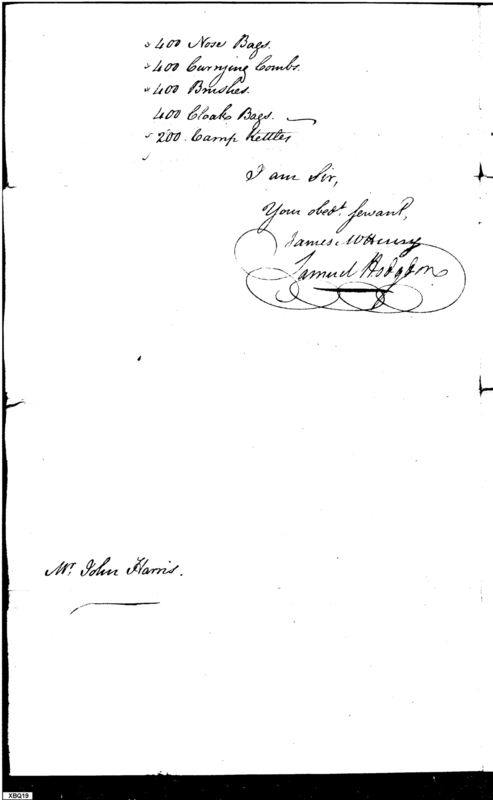 400 Nose Bags.
400 Currying Combs.
400 Brushes.
400 Cloak Bags.
200 Camp Kettles
I am Sir,
Your obedt. Servant,
James McHenry
Samuel Hodgdon
Mr. John Harris.
XBQ19